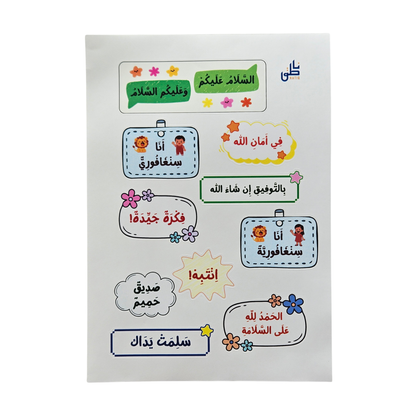 السَّلَامُ عَلَيْكُمْ
وَعَلَيْكُم السَّلَامُ
أَنَا
سِنْغَافُورِيٌّ
فِي أَمَانِ الله
بِالتَّوْفِيقِ إن شَاءَ الله
فِكْرَةٌ جَيِّدَةٌ!
أَنَا
سِنْغَافُورِيَّةٌ
اِنْتَبِهْ!
صَدِيقٌ
حَمِيمٌ
الحَمْدُ لِلّٰهِ
عَلَى السَّلَامَة
سَلِمَتْ يَدَاك